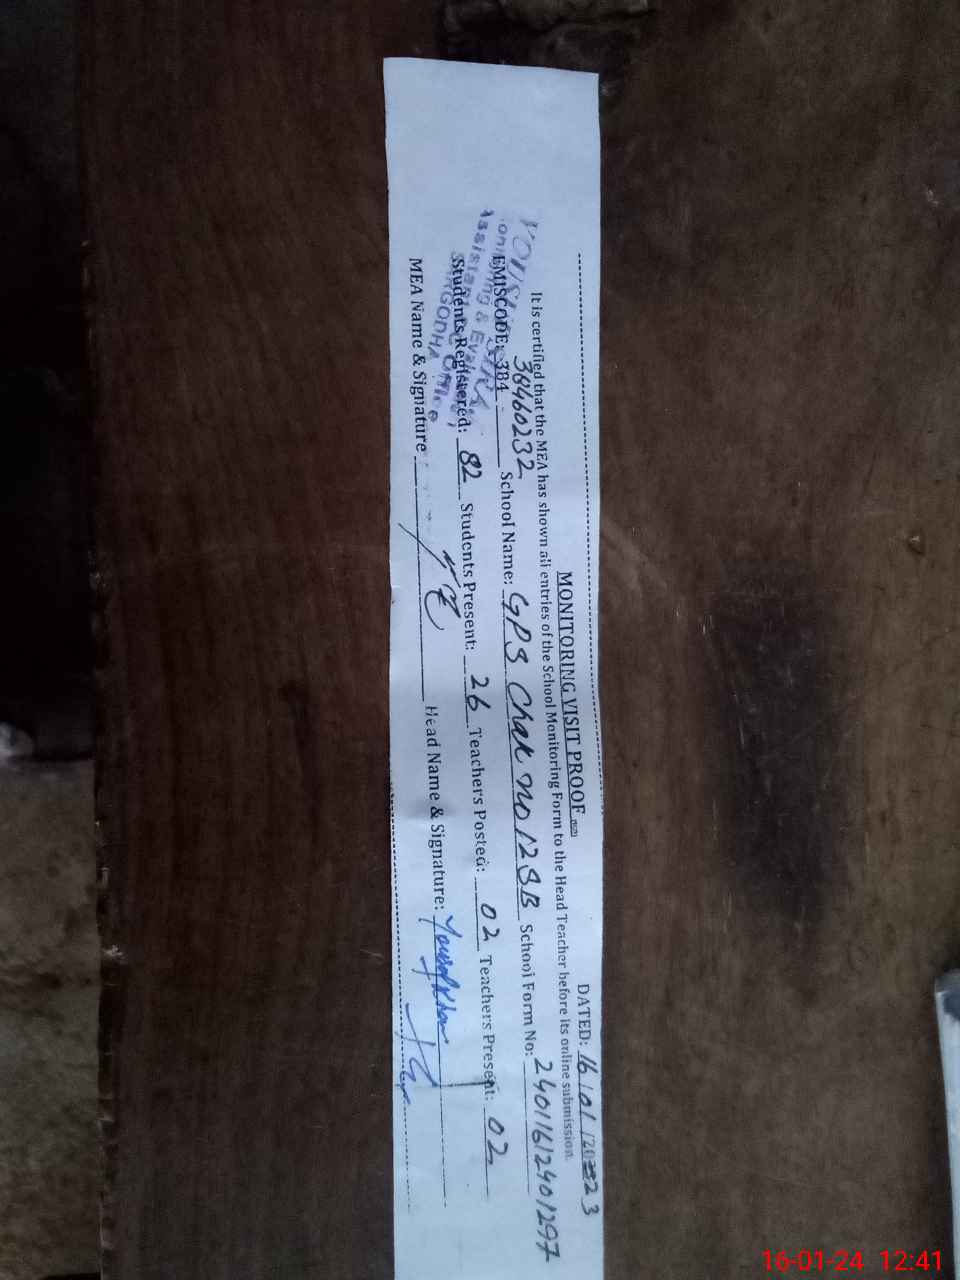 MONITORING VISIT PROOF
DATED: 16/01/2023
It is certified that the MEA has shown all entries of the School Monitoring Form to the Head Teacher before its online submission.
EMISCODE: 384 38460232 School Name: GPS Chak no 12SB School Form No: 24011612401297
Students Registered: 82 Students Present: 26 Teachers Posted: 02 Teachers Present: 02
MEA Name & Signature Head Name & Signature: Yousaf Khan
Assistant
SARGODHA
16-01-24 12:41